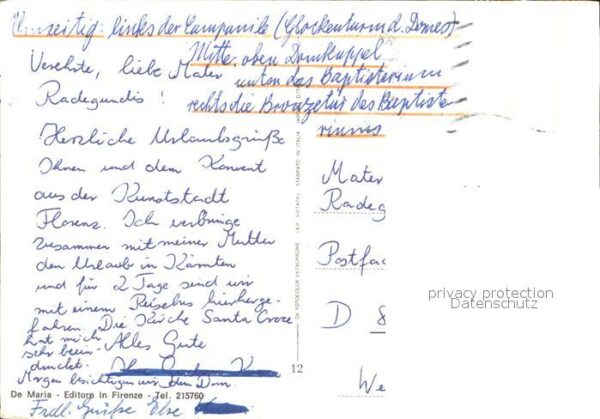 Umseitig: links der Campanile (Glockenturm d. Domes)
Mitte: oben Domkuppel
unten das Baptisterium
rechts die Bronzetür des Baptiste
riums
Verehrte, liebe Mater
Radegundis!
Herzliche Urlaubsgrüße
Ihnen und dem Konvent
aus der Kunststadt
Florenz. Ich verbringe
zusammen mit meiner Mutter
den Urlaub in Kärnten
und für 2 Tage sind wir
mit einem Reisebus hierherge-
fahren. Die Kirche Santa Croce
hat mich
sehr beein-
druckt.
Alles Gute
Morgen besichtigen wir den Dom.
Frdl. Grüße Else
De Maria - Editore in Firenze - Tel. 215760
12
DA FOTOCOLOR EKTACHROME
STAMPATO IN ITALIA
Mater
Radeg
Postfac
D 8
We
privacy protection
Datenschutz